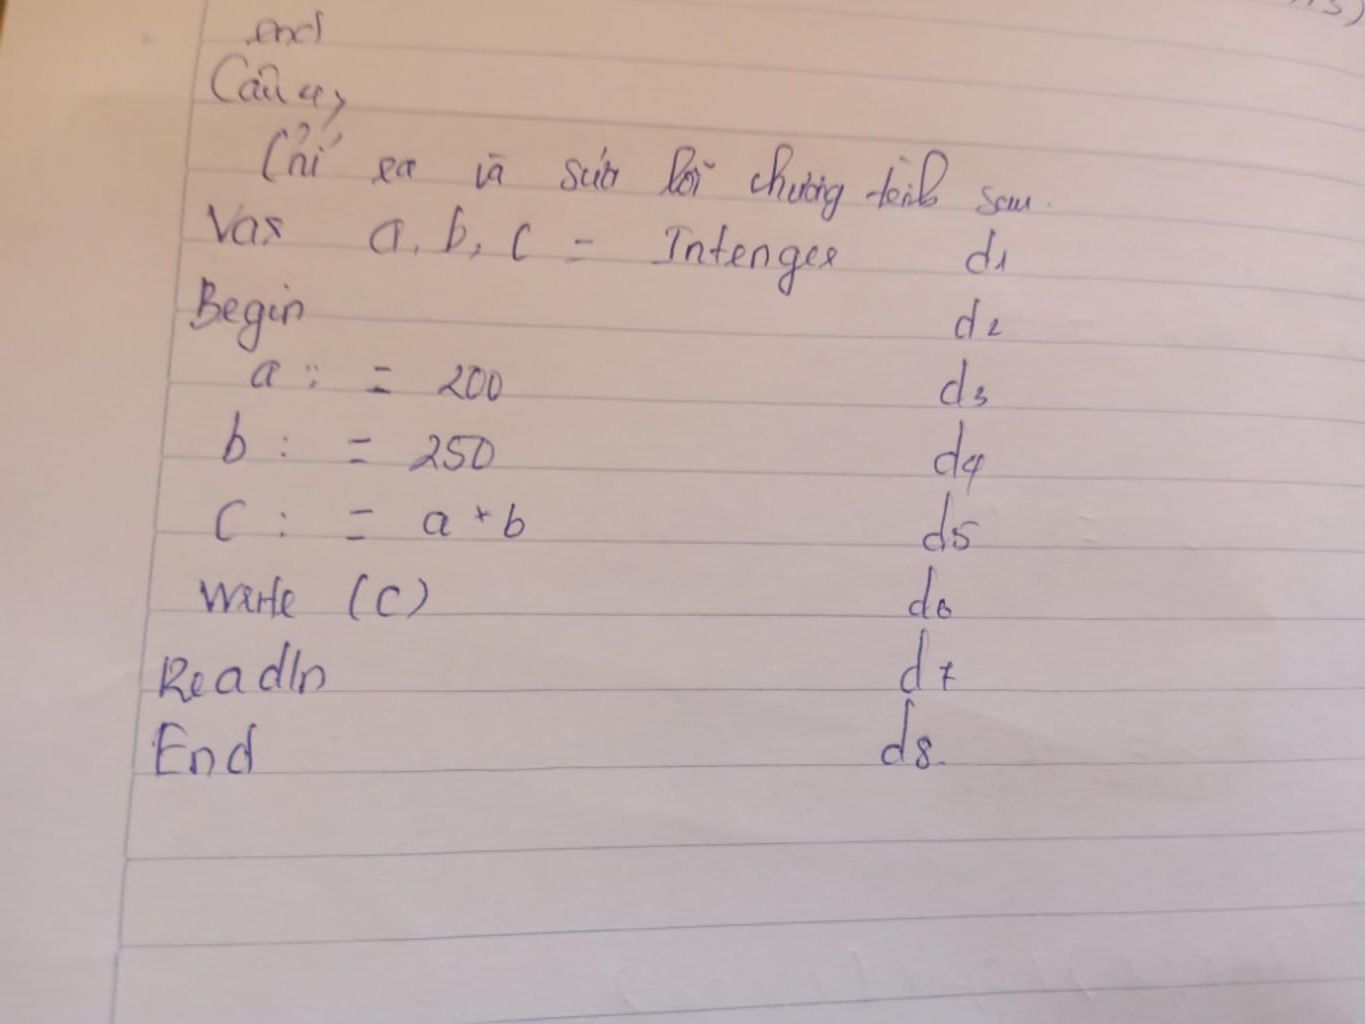 end
Câu 4,
Chỉ ra và sửa lỗi chương trình sau.
Var a, b, c = Intenger d1
Begin d2
a : = 200 d3
b : = 250 d4
C : = a + b d5
Write (C) d6
Readln d7
End d8.